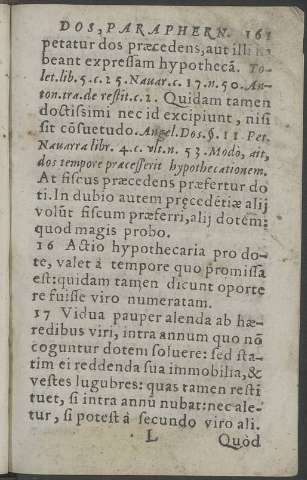 DOS, PARAPHERN. 161
petatur dos præcedens, aut illi ha
beant expressam hypothecā. To-
let. lib. 5. c. 25. Nauar. c. 17. n. 50. An-
ton. tra. de restit. c. 2. Quidam tamen
doctissimi nec id excipiunt, nisi
sit cōsuetudo. Angel. Dos. §. 11. Pet.
Nauarra libr. 4. c. vlt. n. 53. Modò, ait,
dos tempore præcesserit hypothecationem.
At fiscus præcedens præfertur do
ti. In dubio autem pręcedētiæ alij
volūt fiscum præferri, alij dotem:
quod magis probo.
16 Actio hypothecaria pro do-
te, valet à tempore quo promissa
est: quidam tamen dicunt oporte
re fuisse viro numeratam.
17 Vidua pauper alenda ab hæ-
redibus viri, intra annum quo nō
coguntur dotem soluere: sed sta-
tim ei reddenda sua immobilia, &
vestes lugubres: quas tamen resti
tuet, si intra annū nubat: nec ale-
tur, si potest à secundo viro ali.
L Quòd